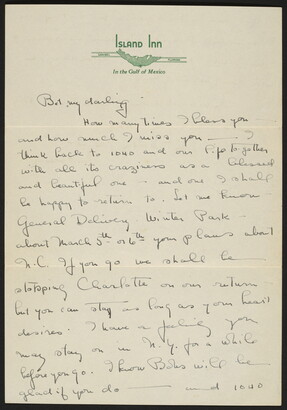 ISLAND INN
In the Gulf of Mexico
my darling
How many times I bless you
and how much I miss you — I
think back to 1040 and our life together
with all its craziness as a blessed
and beautiful one — and one I shall
be happy to return to. Let me know
General Delivery - Winter Park -
about March 5th or 6th your plans about
N.C. If you go we shall be
stopping Charlotte on our return —
but you can stay as long as your heart
desires. I have a feeling you
may stay on in N.Y. for a while
before you go. I know will be
glad if you do — and 1040